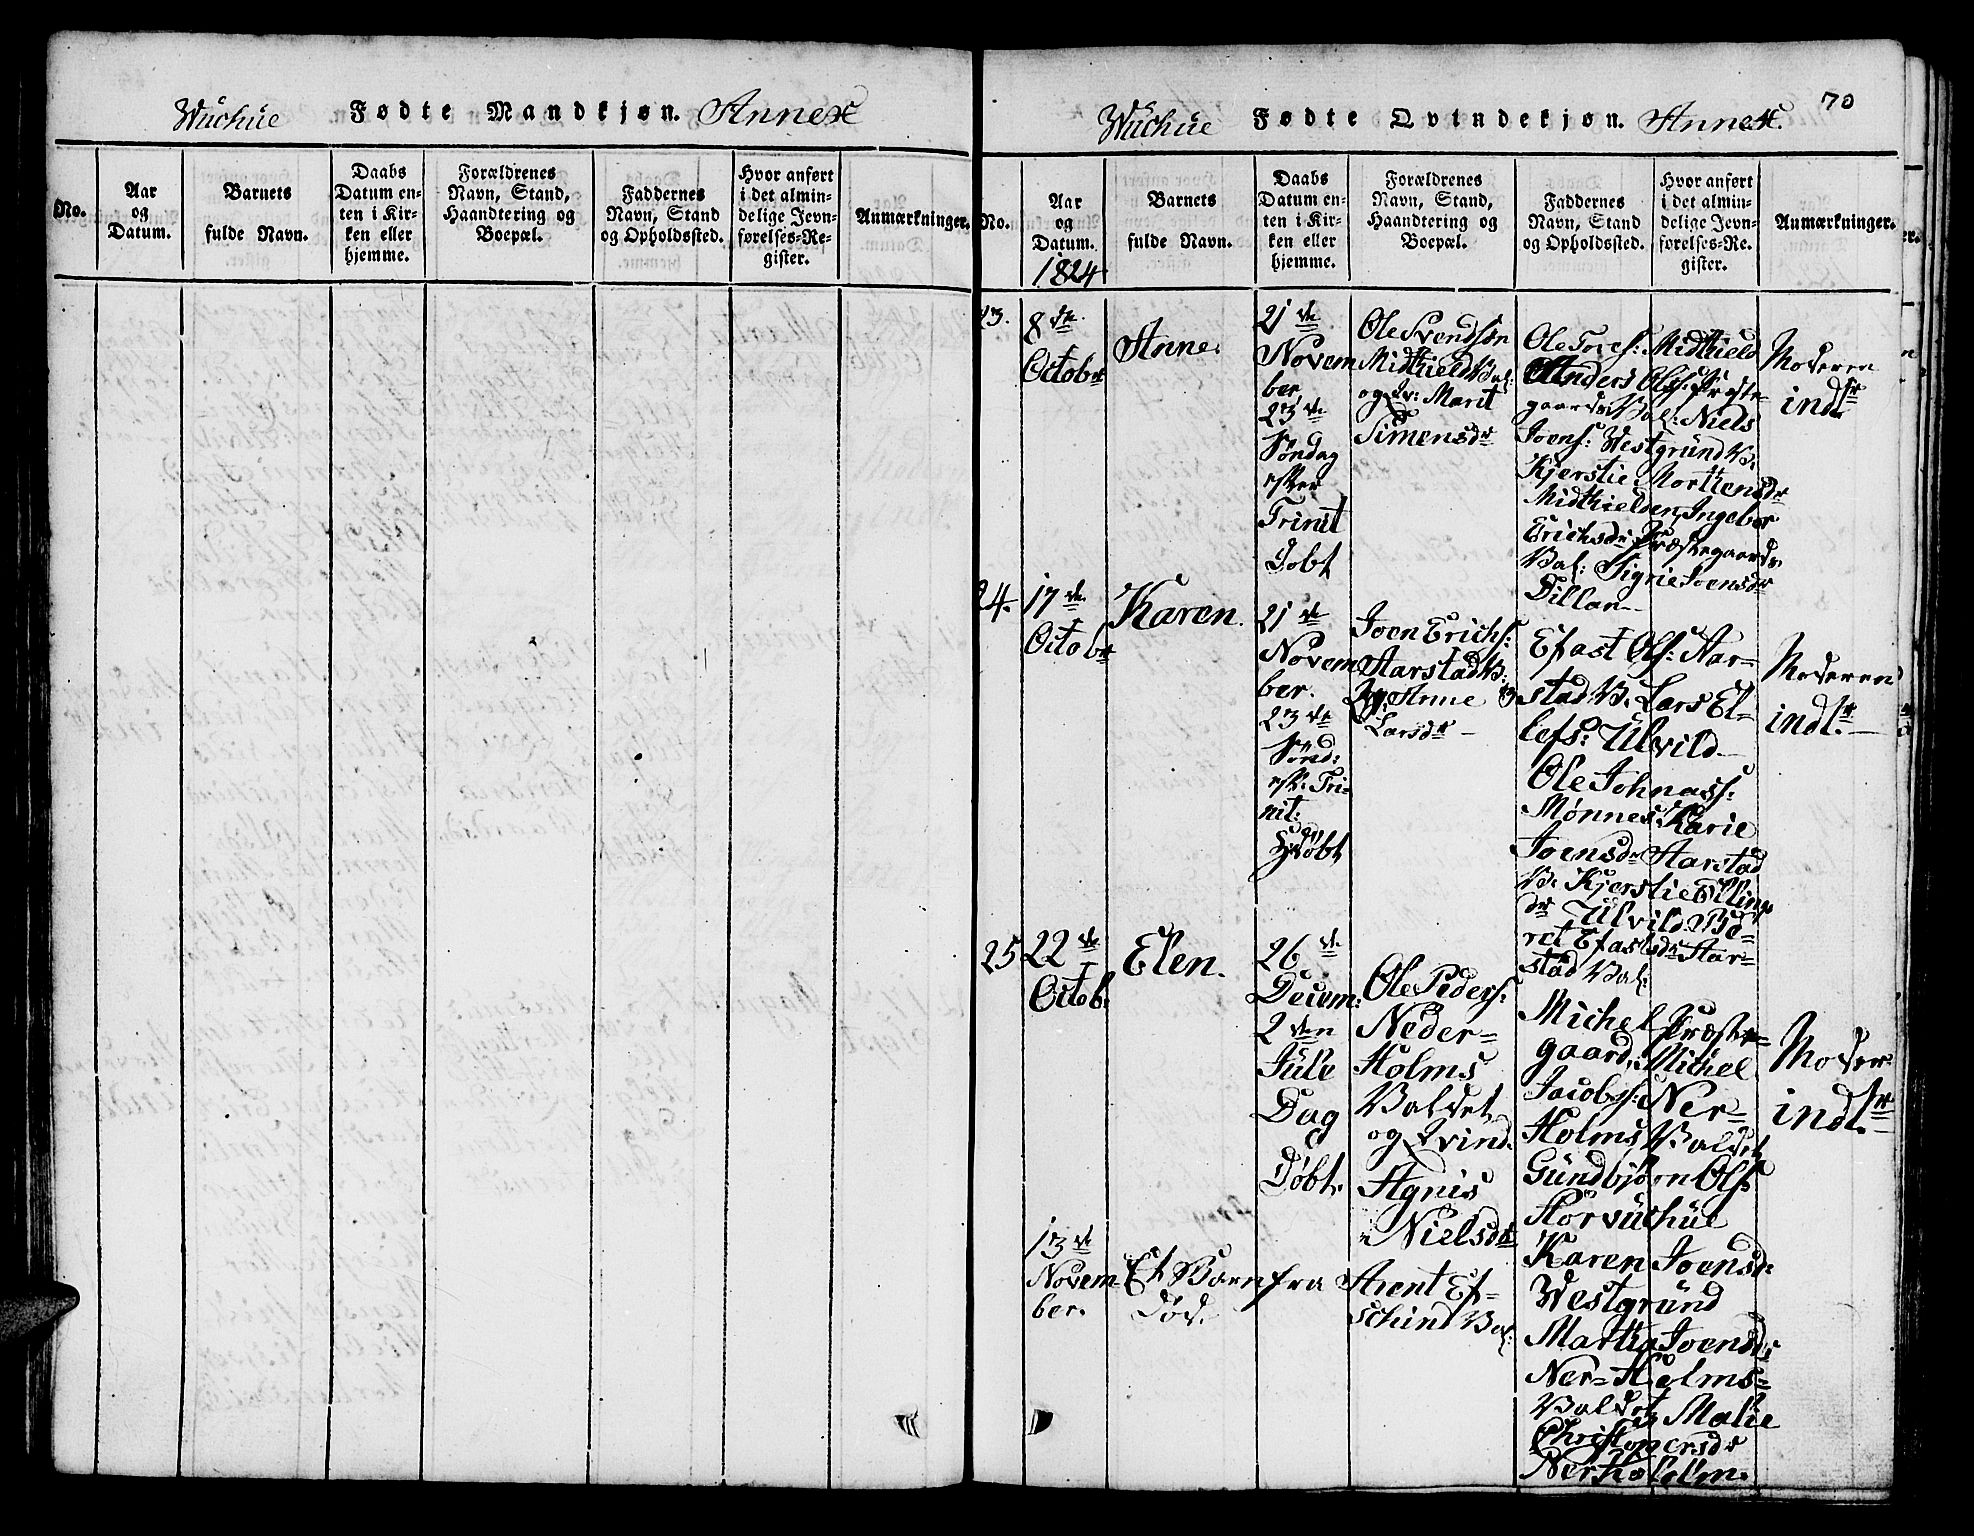 Wuckúe Fødte Mandkjøn. Annex
No.
Aar
og
Datum.
Barnets
fulde Navn.
Daabs
Datum en-
ten i Kir-
ken eller
hjemme.
Forældrenes
Navn, Stand,
Haandtering og
Boepæl.
Faddernes
Navn, Stand
og Opholdssted.
Hvor anført
i det almin-
delige Jevn-
førelses-Re-
gister.
Anmærkninger.
Wuckúe Fødte Qvindekjøn. Annex.
70
No.
Aar
og
Datum.
1824
Barnets
fulde Navn.
Daabs
Datum en-
ten i Kir-
ken eller
hjemme.
Forældrenes
Navn, Stand,
Haandtering og
Boepæl.
Faddernes
Navn, Stand
og Opholdssted.
Hvor anført
i det almin-
delige Jevn-
førelses-Re-
gister.
Anmærkninger.
23.
8de
Octobr
Anne.
21de
Novem
ber
23de
Søndag
efter
Trinit
Døbt
Ole Svendsøn
Midthield Val:
og Qv: Marit
Simensdr
Ole Midthield
Anders Ols: Præste-
gaards Val: Niels
Joens: Westgrund V.
Kjerstie Morthensdr
Midthielden, Ingebor
Erichsdr Præstegaards
Val: Sigrie Joensdr
Dillan
Moderen
indlr
24.
17de
Octobr
Karen.
21de
Novem
ber.
23de
Sønd:
eft: Tri-
nit:
Døbt
Joen Erichs:
Starstad V:
Qv: Anne
Larsdr
Efast Ols: Star-
stad V. Lars El-
lefs: Ulvild
Ole Johnass:
Mønnes Karie
Joensdr Starstad
V. Kjerstie Ellings
dr Ulvild Be-
ret Efastsdr Star-
stad Val:
Moderen
indlr
25
22de
Octob:
Elen.
26de
Decem:
2den
Jule
Dag
Døbt.
Ole Peders:
Neder-
Holms
Valdet
og Qvind.
Agnis
Nielsdr
Michel Præste-
gaard, Michel
Jacobs: Ner-
Holms Valdet
Gundbjørn Ols
Storvuckúe
Karen Joensdr
Westgrund
Martha Joensdr
Ner-Holms-
Valdet Malie
Christopersdr
Nerholm.
Moder
indlr
13de
Novem
ber.
Et Barn fra
død.
Arent Ef-
schind Val: